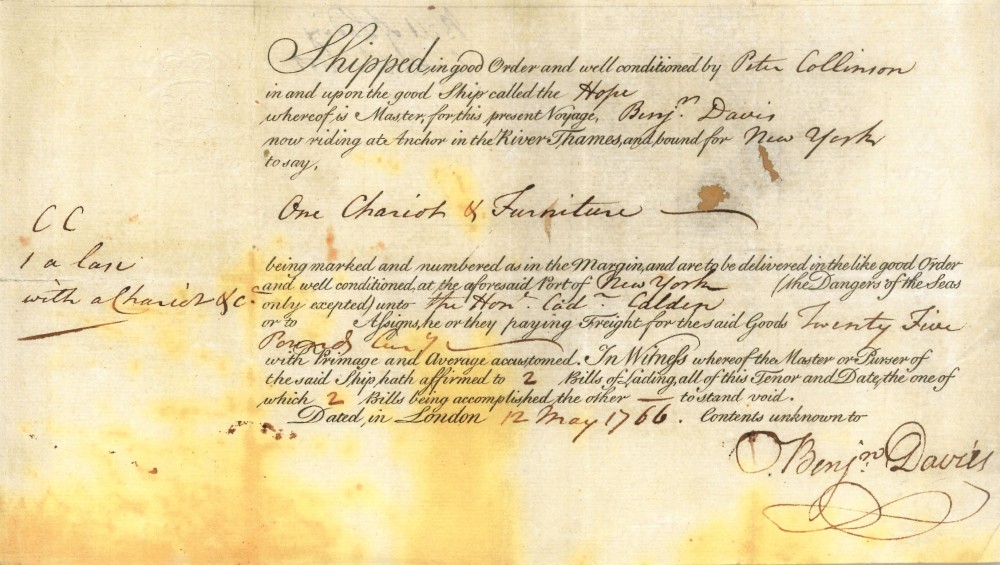 Shipped, in good Order and well conditioned by Peter Collinson
in and upon the good Ship called the Hope
whereof is Master, for this present Voyage, Benj.n Davis
now riding at Anchor in the River Thames, and bound for New York
to say,
One Chariot & Furniture
C C
1 a Case
with a Chariot & c.
being marked and numbered as in the Margin, and are to be delivered in the like good Order
and well conditioned, at the aforesaid Port of New York (the Dangers of the Seas
only exepted) unto the Hon.r Cad.n Colden
or to Assigns, he or they paying Freight for the said Goods Twenty Five
Pounds Cur.y
with Primage and Average accustomed. In Witness whereof the Master or Purser of
the said Ship, hath affirmed to 2 Bills of Lading, all of this Tenor and Date, the one of
which 2 Bills being accomplished, the other to stand void.
Dated, in London 12 May 1766. Contents unknown to
Benj.n Davis